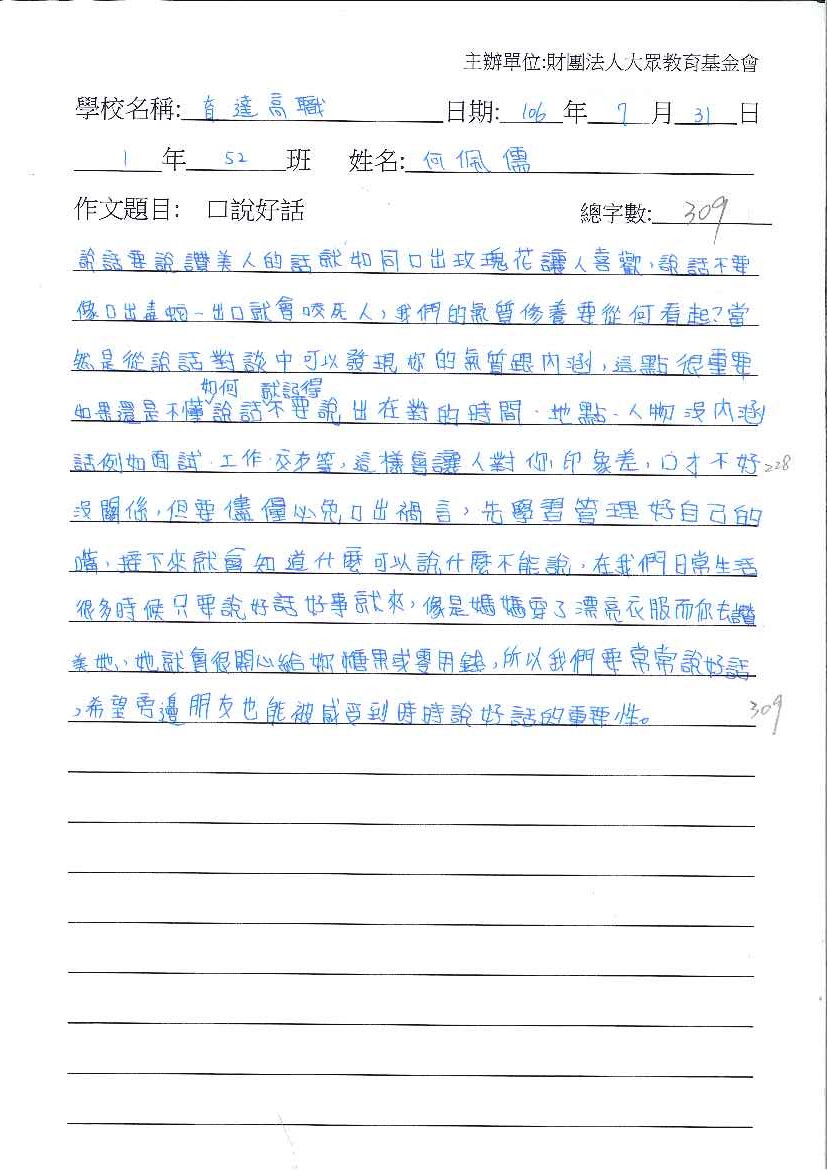 主辦單位:財團法人大眾教育基金會
學校名稱: 育達高職 日期: 106 年 7 月 31 日
1 年 52 班 姓名: 何佩儒
作文題目: 口說好話 總字數: 309
說話要說讚美人的話就如同口出玫瑰花讓人喜歡,說話不要
像口出毒蛇一出口就會咬死人,我們的氣質修養要從何看起?當
然是從說話對談中可以發現你的氣質跟內涵,這點很重要
如何 就記得
如果還是不懂說話不要說出在對的時間、地點、人物沒內涵
話例如面試、工作、交友等,這樣會讓人對你印象差,口才不好 228
沒關係,但要儘僅必免口出禍言,先學習管理好自己的
嘴,接下來就會知道什麼可以說什麼不能說,在我們日常生活
很多時候只要說好話好事就來,像是媽媽穿了漂亮衣服而你去讚
美她,她就會很開心給妳糖果或零用錢,所以我們要常常說好話
,希望旁邊朋友也能被感受到時時說好話的重要性。 309